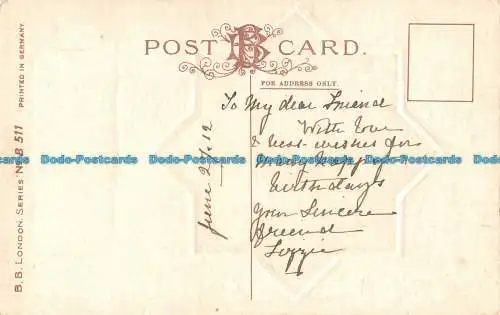 POST CARD.
FOR ADDRESS ONLY.
To My dear Friend
With Love
& Best-wishes for
Many happy
birthdays
Your Sincere
friend
Lizzie
June 2/6.12
B.B. LONDON. SERIES No B 511
PRINTED IN GERMANY.
Dodo-Postcards Dodo-Postcards Dodo-Postcards Dodo-Postcards